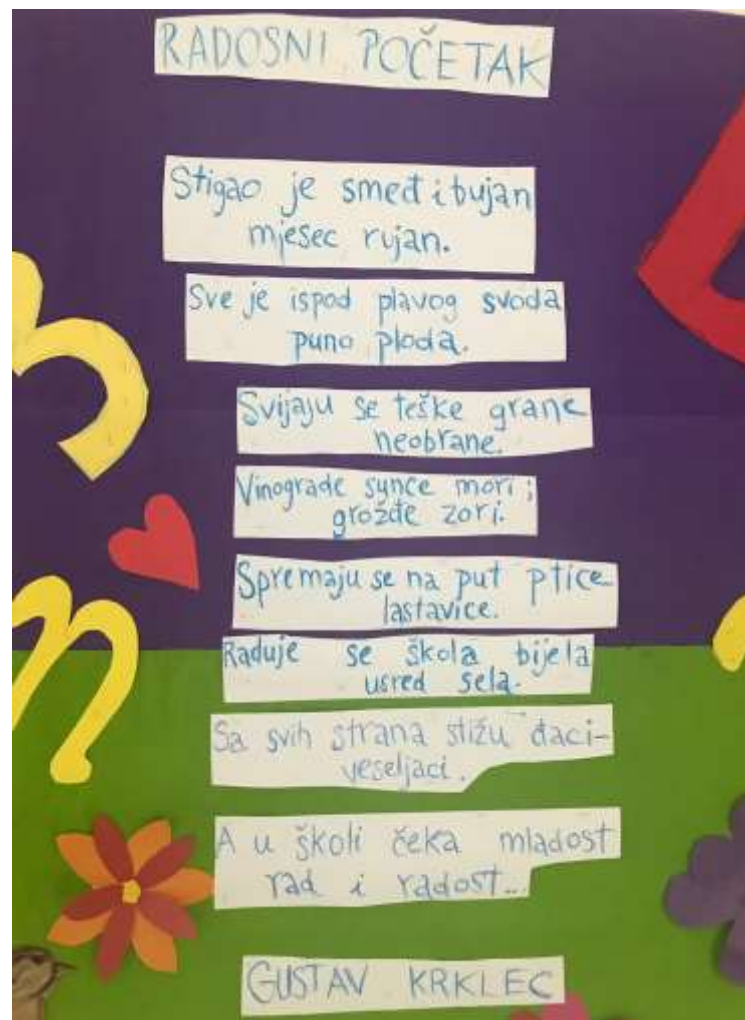 RADOSNI POČETAK
Stigao je smeđ i bujan
mjesec rujan.
Sve je ispod plavog svoda
puno ploda.
Svijaju se teške grane
neobrane.
Vinograde sunce mori;
grožđe zori.
Spremaju se na put ptice
lastavice.
Raduje se škola bijela
usred sela.
Sa svih strana stižu đaci-
veseljaci.
A u školi čeka mladost
rad i radost...
GUSTAV KRKLEC